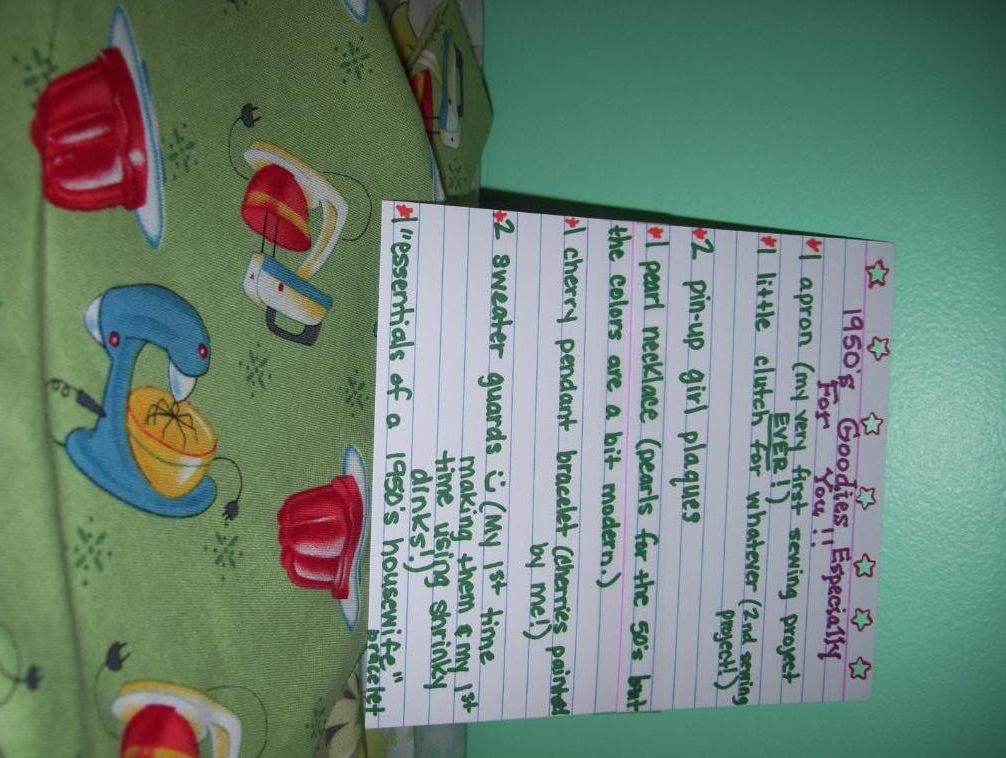 1950's Goodies Especially
For You!!
*1 apron (my very first sewing project
EVER!)
*1 little clutch for whatever (2nd sewing
project!)
*2 pin-up girl plaques
*1 pearl necklace (pearls for the 50's but
the colors are a bit modern.)
*1 cherry pendant bracelet (cherries painted
by me!)
*2 sweater guards ü (my 1st time
making them & my 1st
time using shrinky
dinks!)
*1 "essentials of a 1950's housewife"
bracelet